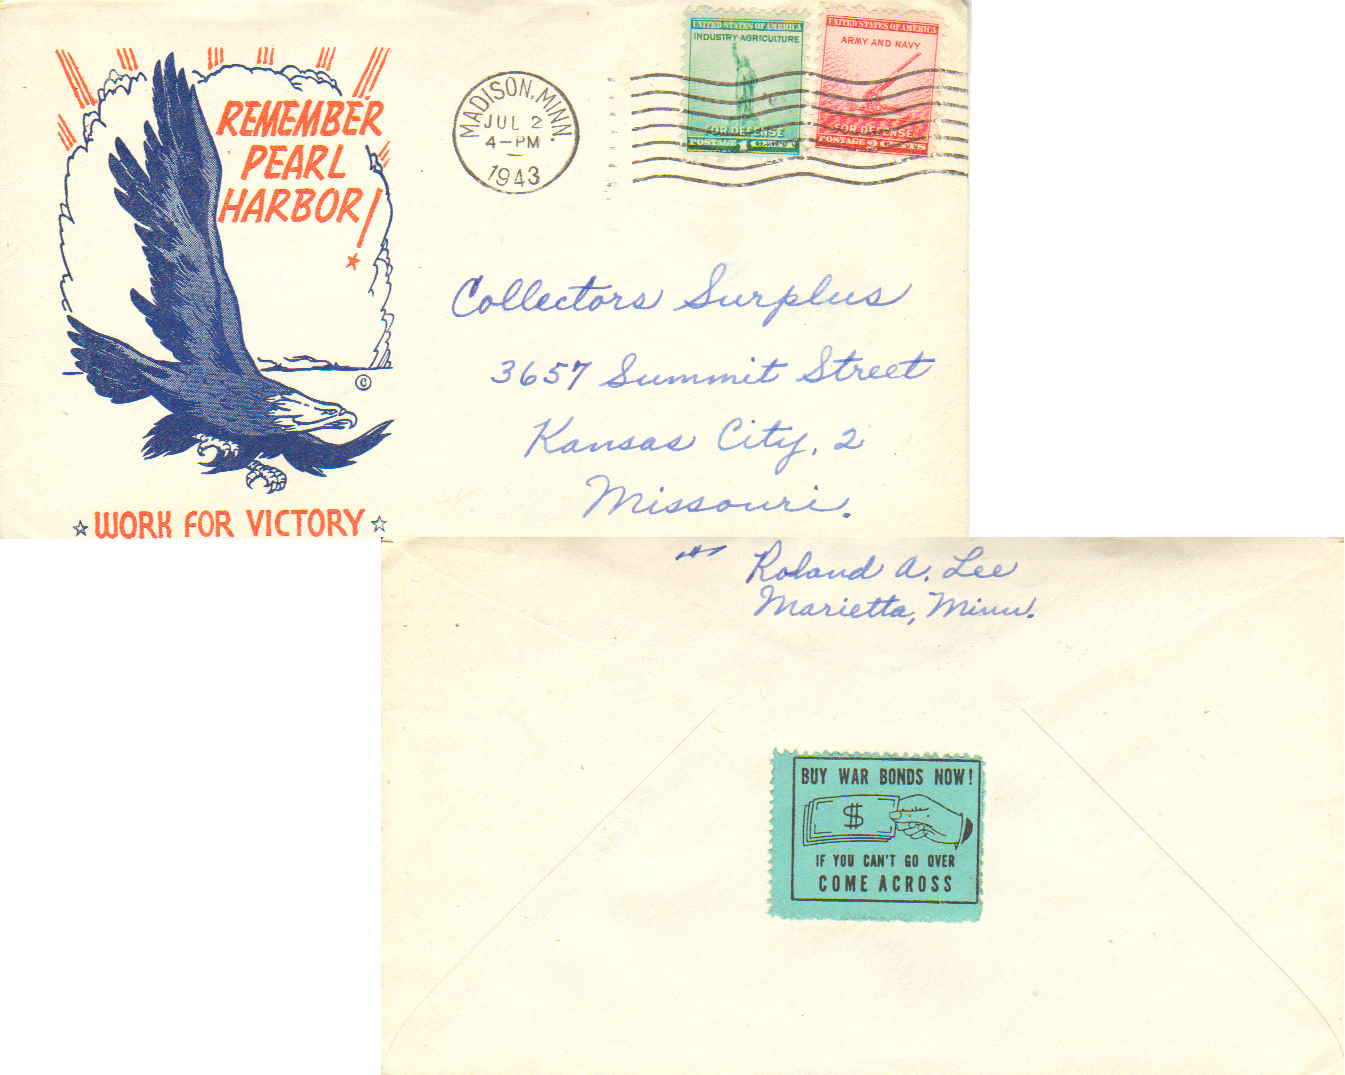 REMEMBER
PEARL
HARBOR!
©
★ WORK FOR VICTORY ★
MADISON, MINN.
JUL 2
4-PM
1943
UNITED STATES OF AMERICA
INDUSTRY AGRICULTURE
FOR DEFENSE
POSTAGE 1 CENT
UNITED STATES OF AMERICA
ARMY AND NAVY
FOR DEFENSE
POSTAGE 2 CENTS
Collectors Surplus
3657 Summit Street
Kansas City, 2
Missouri.
Roland A. Lee
Marietta, Minn.
BUY WAR BONDS NOW!
$
IF YOU CAN'T GO OVER
COME ACROSS